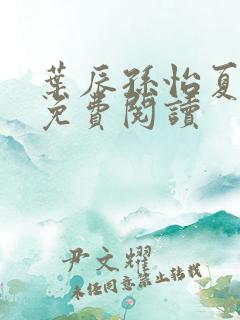 葉辰孫怡夏
免費閱讀
尹文耀
未经同意禁止转载